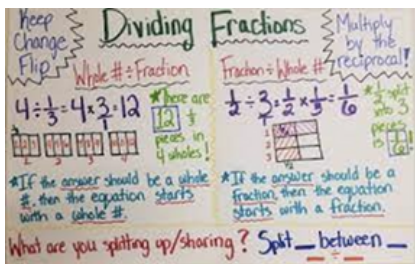 Keep
Change
Flip
Dividing Fractions
Multiply
by the
reciprocal!
Whole # ÷ Fraction
4 ÷ 1/3 = 4 × 3/1 = 12
*There are
12 1/3
pieces in
4 wholes!
*If the answer should be a whole
#, then the equation starts
with a whole #.
Fraction ÷ Whole #
1/2 ÷ 3/1 = 1/2 × 1/3 = 1/6
*1/2 split
into 3
pieces
is 1/6!
*If the answer should be a
fraction, then the equation
starts with a fraction.
What are you splitting up/sharing? Split _ between _
_ ÷ _